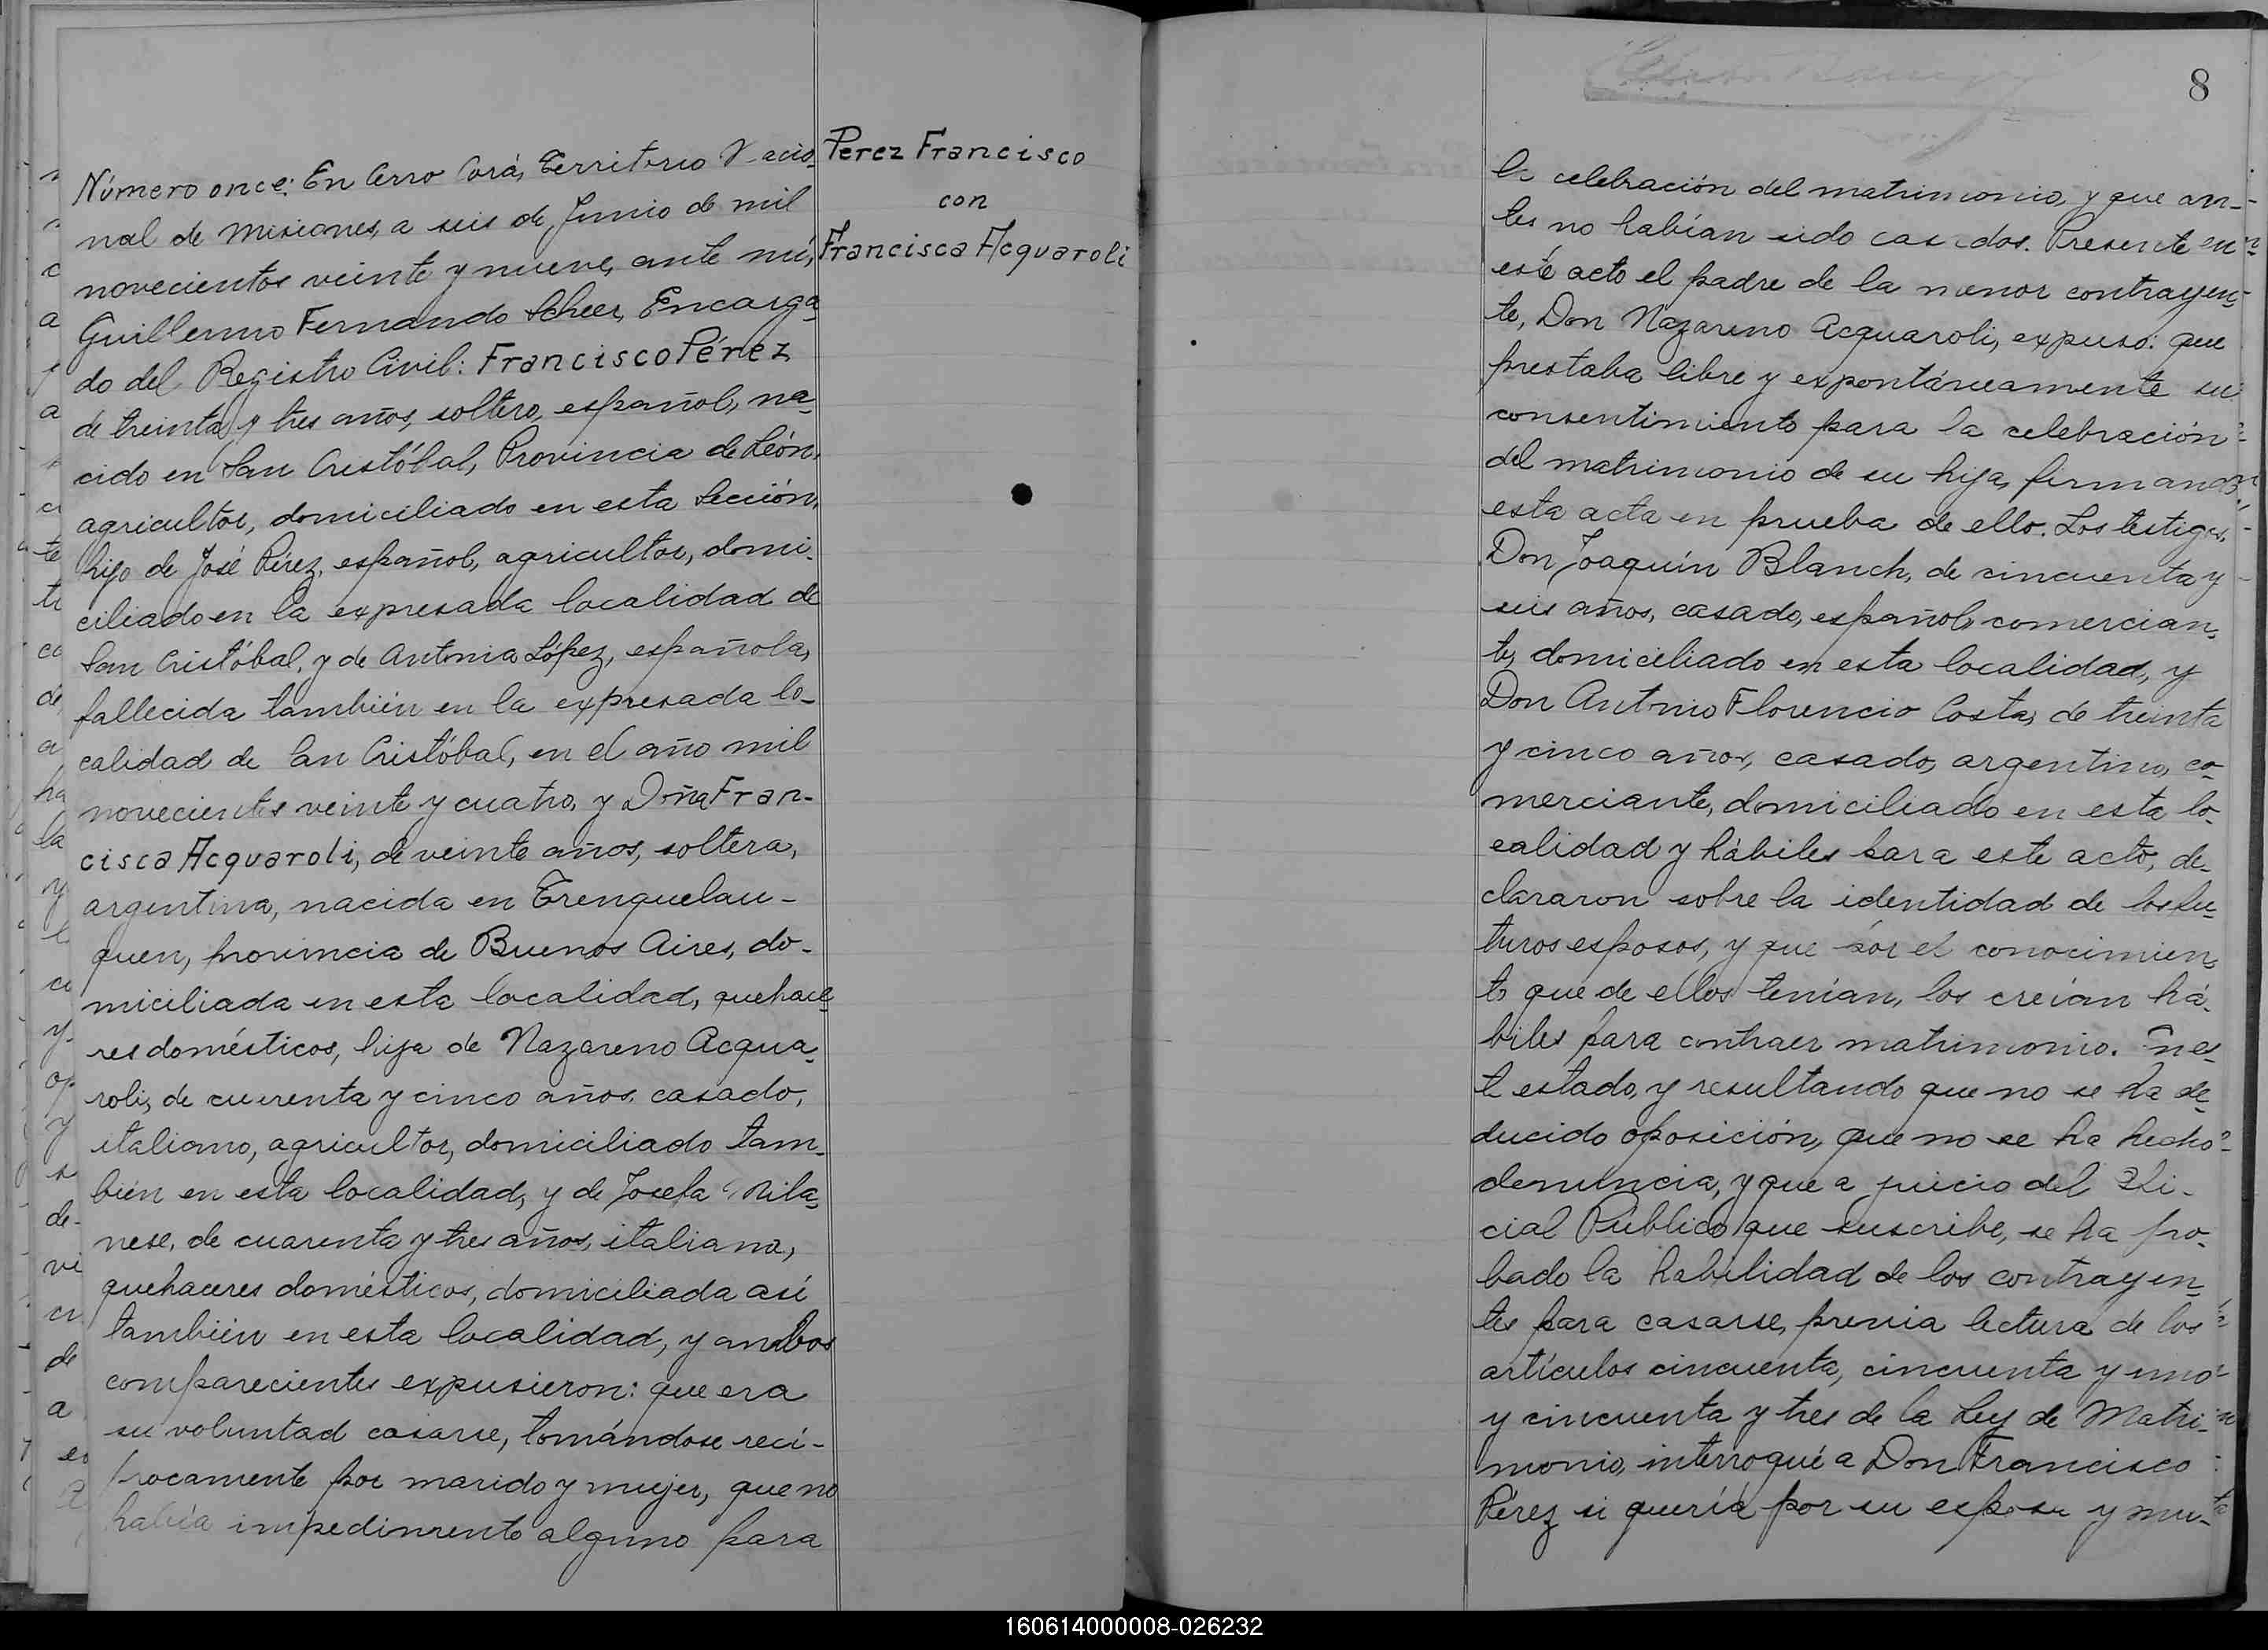 Número once: En Cerro Corá, Territorio Nacio-
nal de Misiones, a seis de Junio de mil
novecientos veinte y nueve, ante mí,
Guillermo Fernando Scheer, Encarga-
do del Registro Civil: Francisco Pérez
de treinta y tres años, soltero, español, na-
cido en San Cristóbal, Provincia de León,
agricultor, domiciliado en esta Sección,
hijo de José Pérez, español, agricultor, domi-
ciliado en la expresada localidad de
San Cristóbal, y de Antonia López, española,
fallecida también en la expresada lo-
calidad de San Cristóbal, en el año mil
novecientos veinte y cuatro, y Doña Fran-
cisca Acquaroli, de veinte años, soltera,
argentina, nacida en Trenquelau-
quen, provincia de Buenos Aires, do-
miciliada en esta localidad, quehace-
res domésticos, hija de Nazareno Acqua-
roli, de cuarenta y cinco años, casado,
italiano, agricultor, domiciliado tam-
bién en esta localidad, y de Josefa Mila-
nese, de cuarenta y tres años, italiana,
quehaceres domésticos, domiciliada así
también en esta localidad, y ambos
comparecientes expusieron: que era
su voluntad casarse, tomándose recí-
procamente por marido y mujer, que no
había impedimento alguno para
Perez Francisco
con
Francisca Acquaroli
8
la celebración del matrimonio, y que an-
tes no habían sido casados. Presente en
este acto el padre de la menor contrayen-
te, Don Nazareno Acquaroli, expuso: que
prestaba libre y expontáneamente su
consentimiento para la celebración
del matrimonio de su hija, firmando
esta acta en prueba de ello. Los testigos,
Don Joaquín Blanch, de cincuenta y
seis años, casado, español, comercian-
te, domiciliado en esta localidad, y
Don Antonio Florencio Costa, de treinta
y cinco años, casado, argentino, co-
merciante, domiciliado en esta lo-
calidad y hábiles para este acto, de-
clararon sobre la identidad de los fu-
turos esposos, y que por el conocimien-
to que de ellos tenían, los creían há-
biles para contraer matrimonio. En es-
te estado, y resultando que no se ha de-
ducido oposición, que no se ha hecho
denuncia, y que a juicio del Ofi-
cial Público que suscribe, se ha pro-
bado la habilidad de los contrayen-
tes para casarse, previa lectura de los
artículos cincuenta, cincuenta y uno
y cincuenta y tres de la Ley de Matri-
monio, interrogué a Don Francisco
Pérez si quería por su esposa y mu-
160614000008-026232